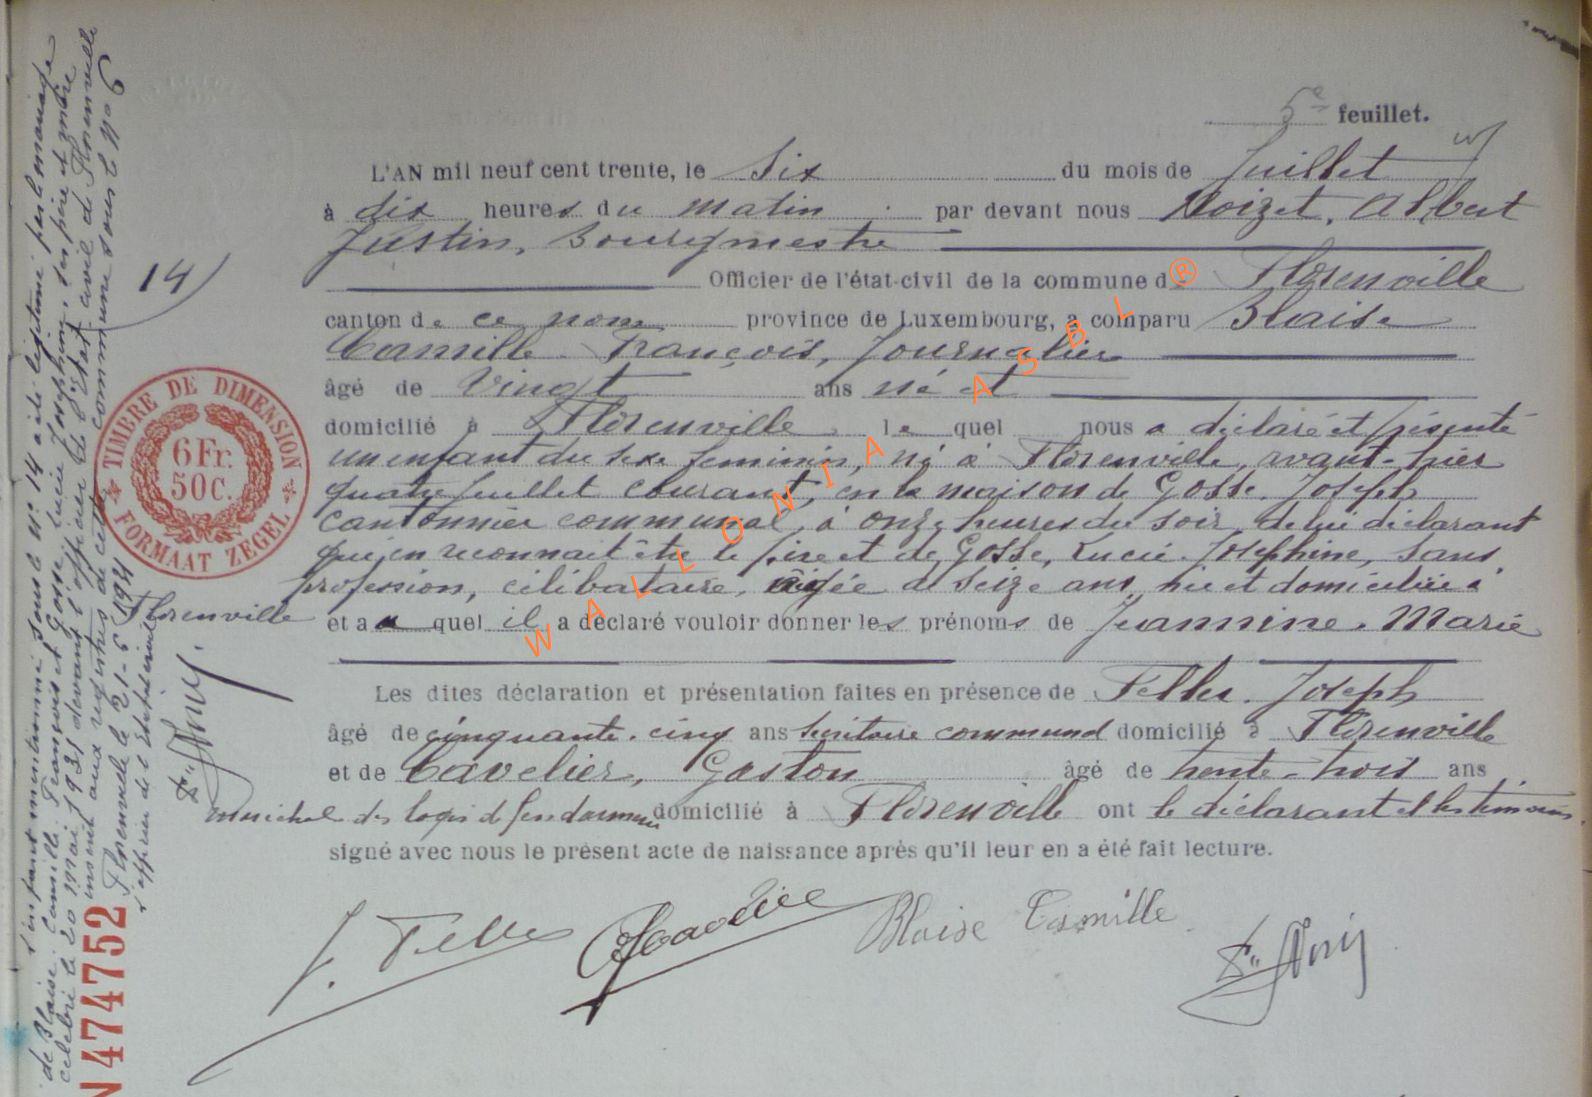 5e feuillet.
L'AN mil neuf cent trente, le six du mois de Juillet
à dix heures du matin par devant nous Noizet, Albert
Justin, Bourgmestre
14)
Officier de l'état-civil de la commune d Florenville
canton de ce nom province de Luxembourg, a comparu Blaise
Camille François, Journalier
âgé de Vingt ans né et
domicilié à Florenville, lequel nous a déclaré et présenté
un enfant du sexe féminin, né à Florenville, avant-hier
quatre Juillet courant, en la maison de Gosse, Joseph
cantonnier communal, à onze heures du soir, de lui déclarant
qui en reconnait être le père et de Gosse, Lucie Joséphine, sans
profession, célibataire, âgée de seize ans, née et domiciliée à
Florenville et a quel il a déclaré vouloir donner les prénoms de Jeannine, Marie
Les dites déclaration et présentation faites en présence de Feller, Joseph
âgé de cinquante-cinq ans secrétaire communal domicilié à Florenville
et de Cavelier, Gaston âgé de trente-trois ans
maréchal des logis de gendarmerie domicilié à Florenville ont le déclarant et les témoins
signé avec nous le présent acte de naissance après qu'il leur en a été fait lecture.
J. Feller
Blaise Camille
TIMBRE DE DIMENSION
6 Fr.
50 C.
FORMAAT ZEGEL
N 474752
L'enfant mentionné sous le n° 14 a été légitimé par le mariage
de Blaise, Camille François et Gosse Lucie Joséphine, ses père et mère
célébré le 20 mai 1931 devant l'officier de l'Etat civil de Florenville
inscrit aux registres de cette commune sous le n° 6
Florenville le 21-5 1931
l'officier de l'Etat civil
WALLONIA ASBL ®